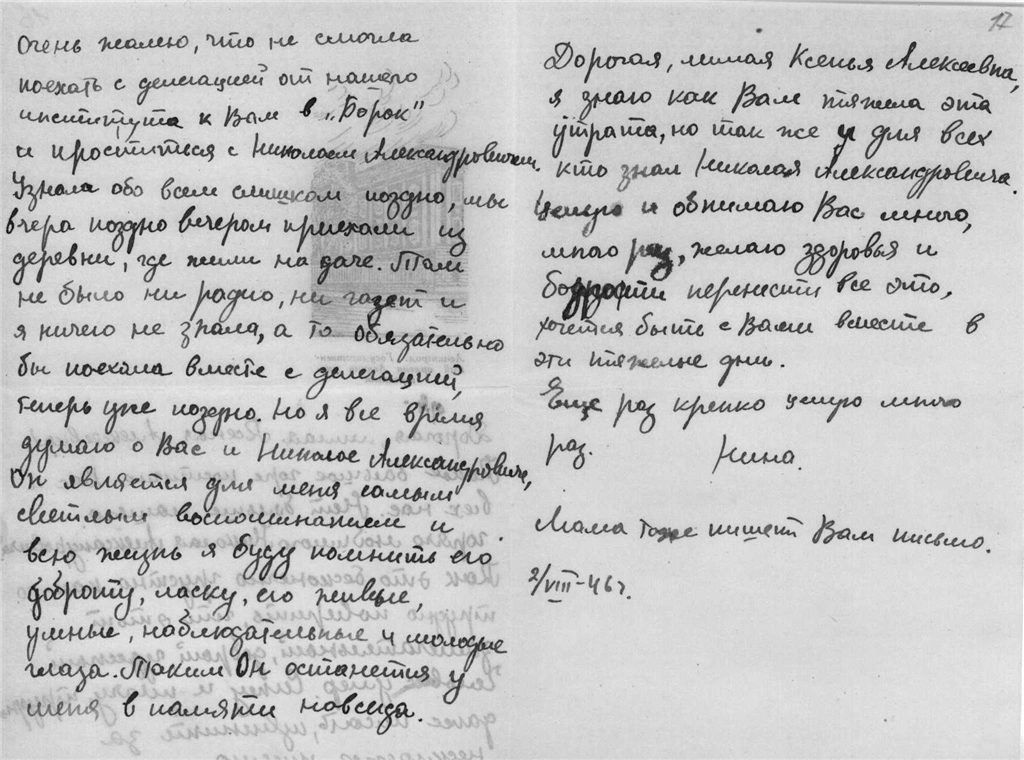 Очень жалею, что не смогла
поехать с делегацией от нашего
института к Вам в „Борок"
и проститься с Николаем Александровичем.
Узнала обо всем слишком поздно, мы
вчера поздно вечером приехали из
деревни, где жили на даче. Там
не было ни радио, ни газет и
я ничего не знала, а то обязательно
бы поехала вместе с делегацией,
теперь уже поздно. Но я все время
думаю о Вас и Николае Александровиче,
Он является для меня самым
светлым воспоминанием и
всю жизнь я буду помнить его
доброту, ласку, его живые,
умные, наблюдательные и молодые
глаза. Таким Он останется у
меня в памяти навсегда.
17
Дорогая, милая Ксенья Алексеевна,
я знаю как Вам тяжела эта
утрата, но так же и для всех
кто знал Николая Александровича.
Целую и обнимаю Вас много,
много раз, желаю здоровья и
бодрости перенести все это,
хочется быть с Вами вместе в
эти тяжелые дни.
Еще раз крепко целую много
раз. Нина.
Мама тоже пишет Вам письмо.
2/VIII-46 г.